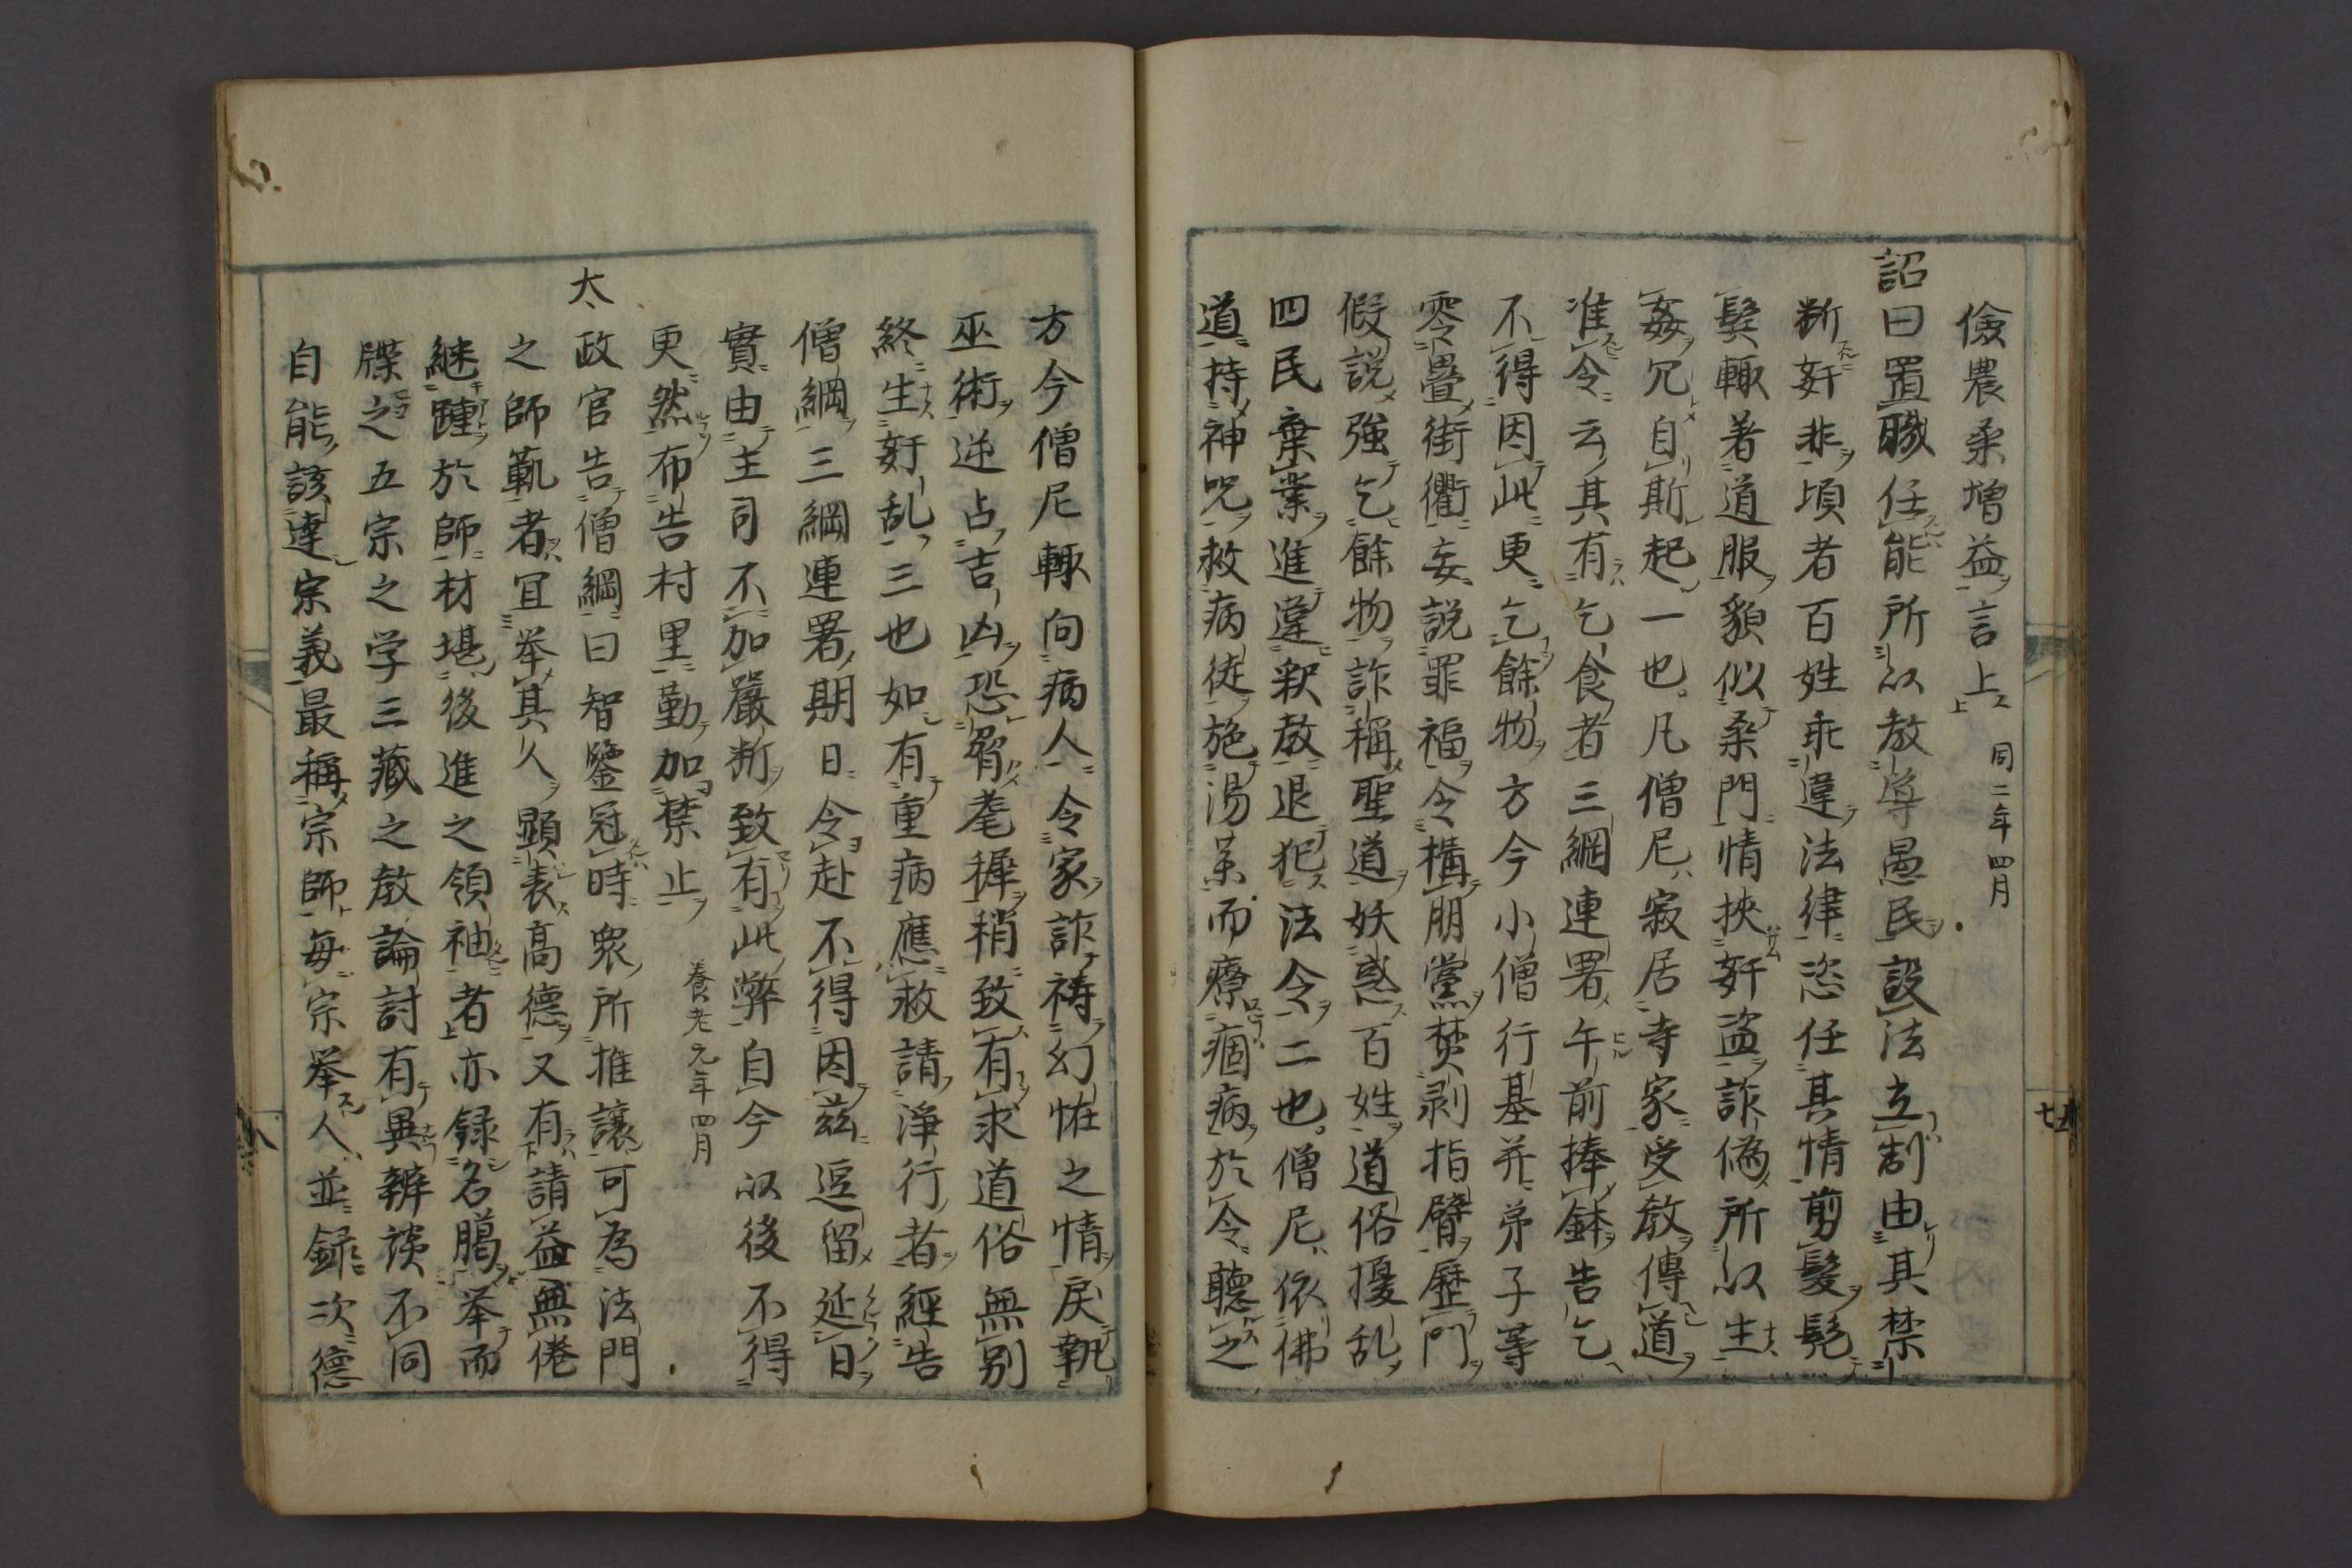 儉農柔増益言上 同二年四月
詔曰置職任能所以教導愚民設法立制由其禁
断奸非頃者百姓乖違法律恣任其情剪髪髡
鬂輙著道服貌似桒門情挾奸盗詐偽所以生
姦宄自斯起一也凡僧尼寂居寺家受教傳道
准令云其有乞食者三綱連署午前捧鉢告乞
不得因此更乞餘物方今小僧行基并弟子等
零疊街衢妄説罪福令構朋黨焚剥指臂歴門
假説強乞餘物詐稱聖道妖惑百姓道俗擾乱
四民棄業進違釈教退犯法令二也僧尼依佛
道持神呪救病徒施湯薬而療痼病於令聴之
方今僧尼輙向病人令家詐祷幻恠之情戻執
巫術逆占吉凶恐脅耄穉稍致有求道俗無別
終生奸乱三也如有重病應救請浄行者經告
僧綱三綱連署期日令赴不得因茲逗留延日
實由主司不加嚴断致有此弊自今以後不得
更然布告村里勤加禁止 養老元年四月
太政官告僧綱曰智鑒冠時衆所推讓可為法門
之師範者宜挙其人顕表高德又有請益無倦
継踵於師材堪後進之領袖者亦録名臈挙而
牒之五宗之学三藏之教論討有異辨談不同
自能該達宗義最稱宗師毎宗挙人並録次德
七
八